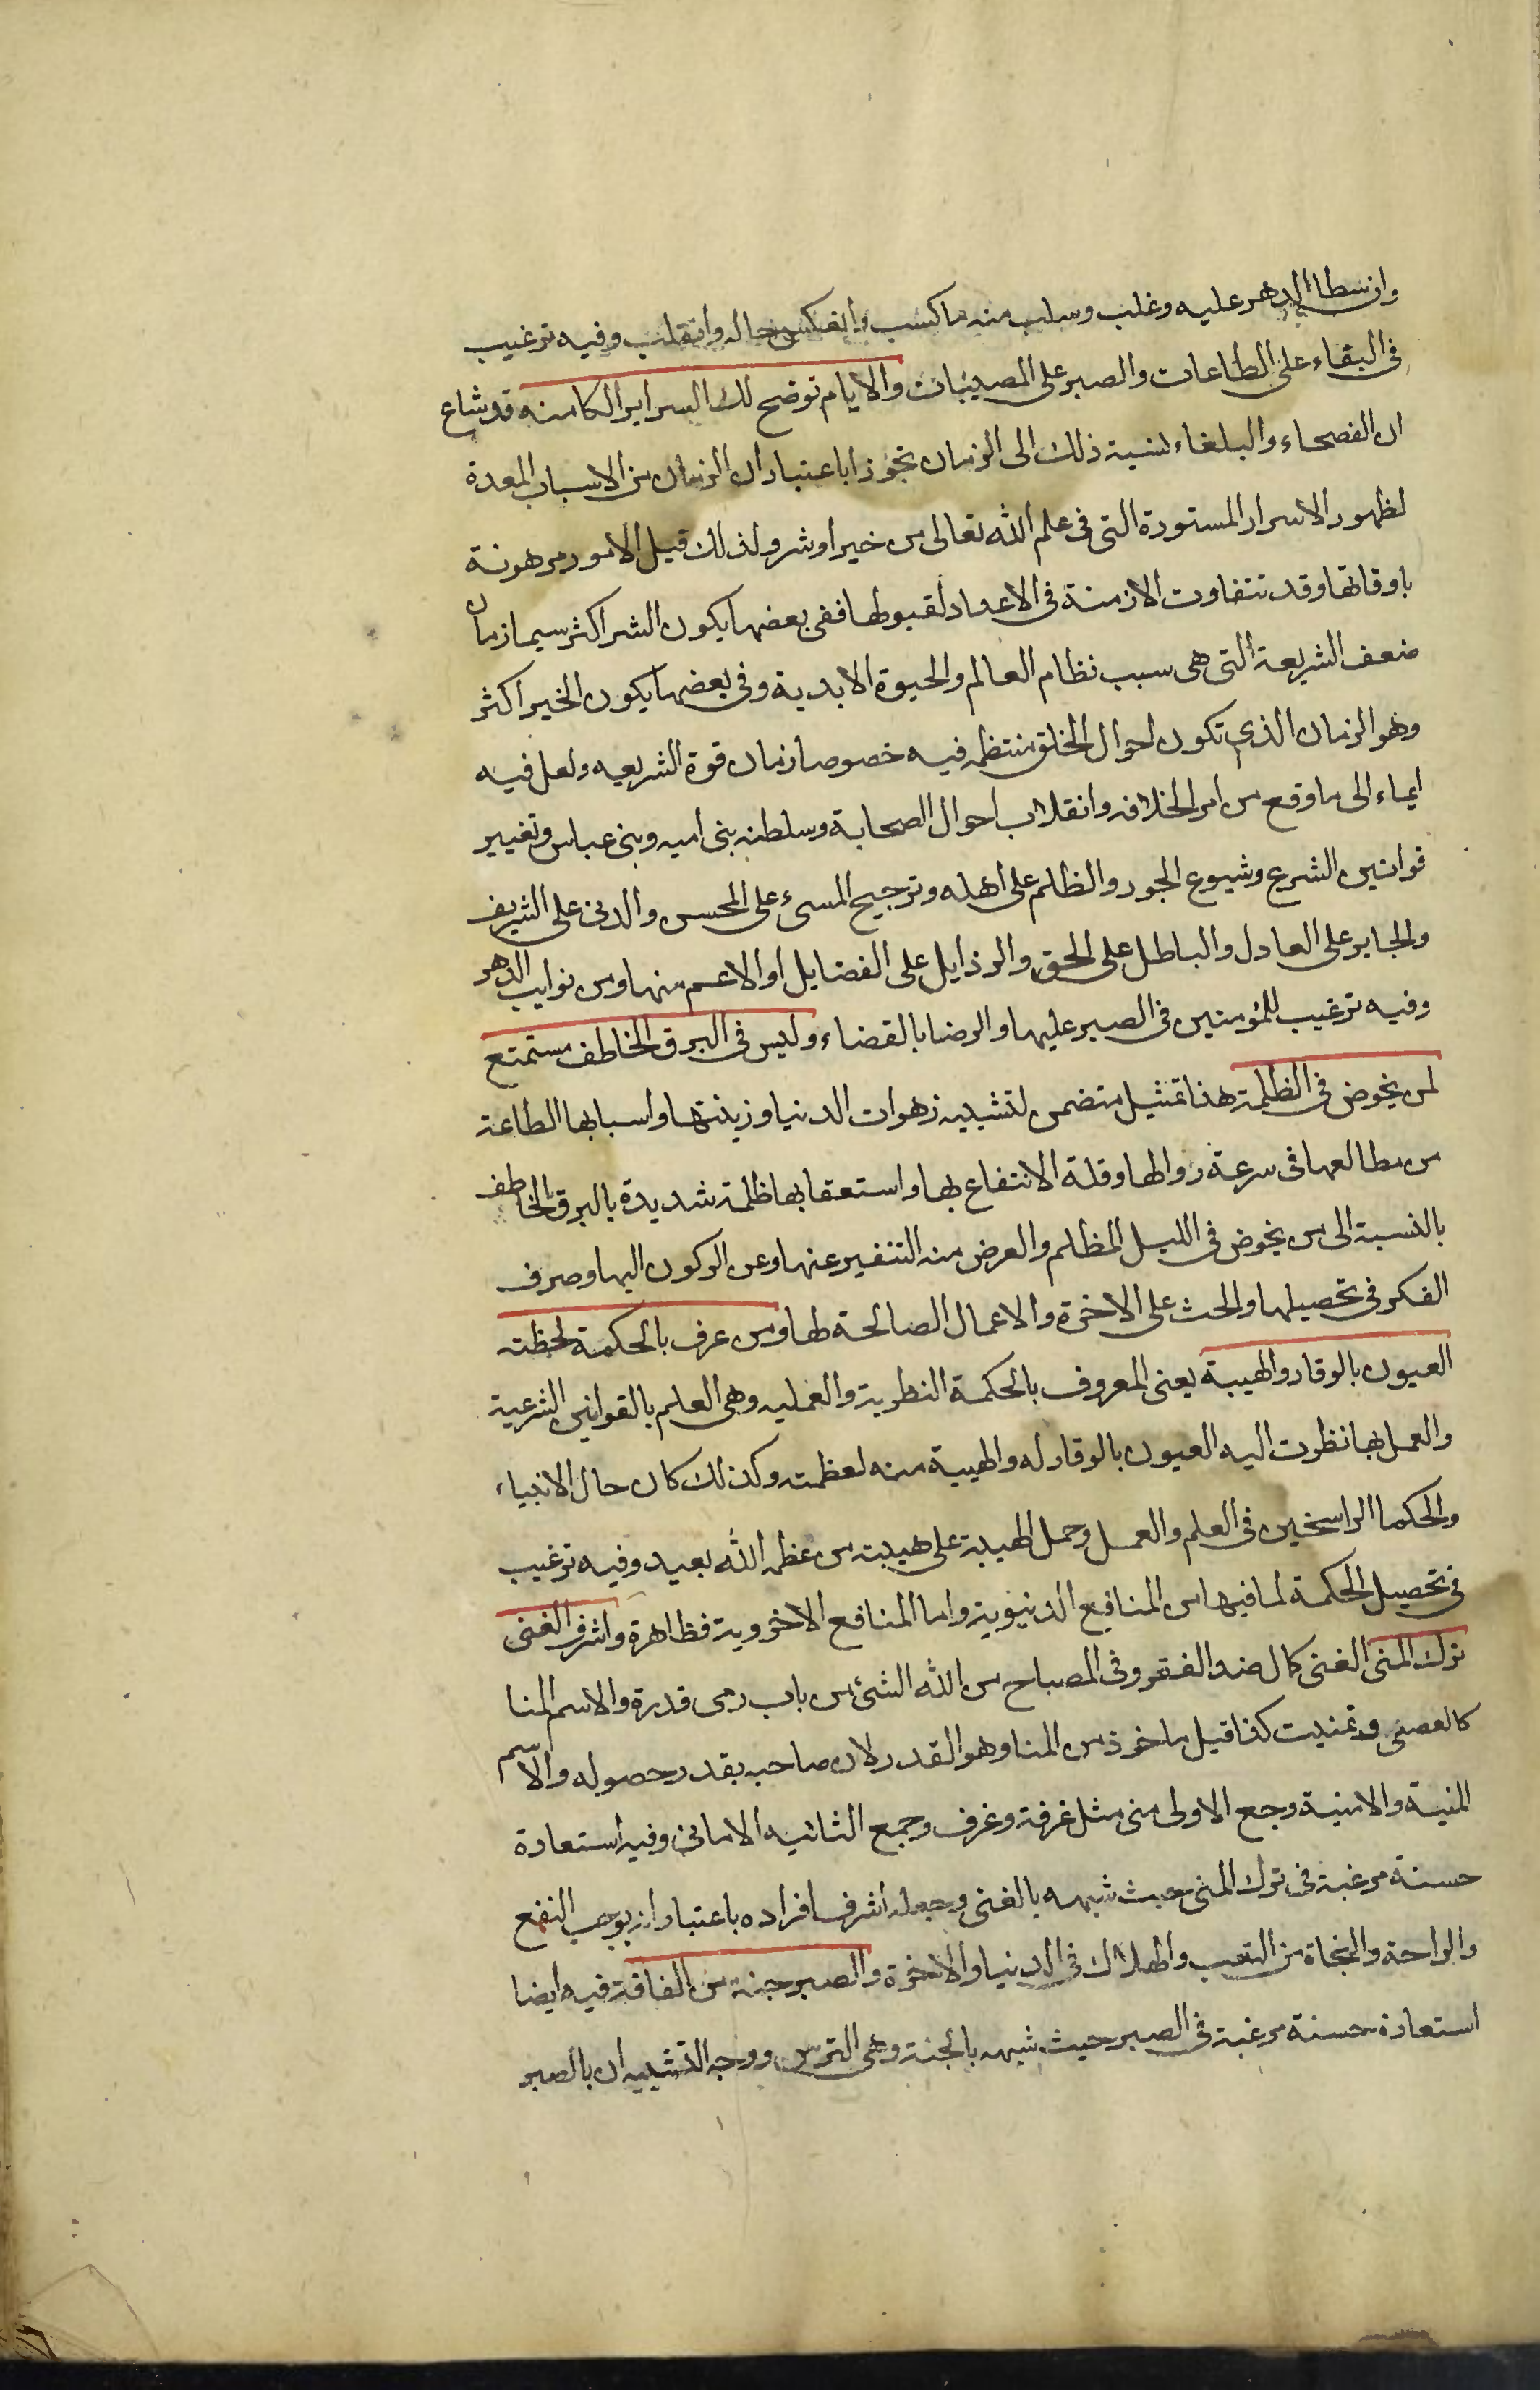 وان سطا الدهر عليه وغلب وسلب منه ما كسب وانعكس حاله وانقلب وفيه ترغيب
فى البقاء على الطاعات والصبر على المصيبات والايام توضح لك السراير الكامنه قد شاع
ان الفصحاء والبلغاء نسبة ذلك الى الزمان تجوزا باعتبار ان الزمان من الاسباب المعدة
لظهور الاسرار المستورة التى فى علم الله تعالى من خير او شر ولذلك قيل الامور مرهونة
باوقاتها وقد تتفاوت الازمنة فى الاعداد لقبولها ففى بعضها يكون الشر اكثر سيما زمان
ضعف الشريعة التى هى سبب نظام العالم والحيوة الابدية وفى بعضها يكون الخير اكثر
وهو الزمان الذى تكون احوال الخلق منتظمه فيه خصوصا زمان قوة الشريعه ولعل فيه
ايماء الى ما وقع من امر الخلافه وانقلاب احوال الصحابة وسلطنه بنى اميه وبنى عباس وتغيير
قوانين الشرع وشيوع الجور والظلم على اهله وترجيح المسىء على المحسن والدنى على الشريف
والجاير على العادل والباطل على الحق والرذايل على الفضايل او الاعم منها ومن نوايب الدهر
وفيه ترغيب للمؤمنين فى الصبر عليها والرضا بالقضاء وليس فى البرق الخاطف مستمتع
لمن يخوض فى الظلمة هذا تمثيل متضمن لتشبيه زهوات الدنيا وزينتها واسبابها الطاعة
من مطالعها فى سرعة زوالها وقلة الانتفاع بها واستعقابها ظلمة شديدة بالبرق الخاطف
بالنسبة الى من يخوض فى الليل المظلم والغرض منه التنفير عنها وعن الركون اليها وصرف
الفكر فى تحصيلها والحث على الاخرة والاعمال الصالحة لها ومن عرف بالحكمة لحظته
العيون بالوقار والهيبة يعنى المعروف بالحكمة النظرية والعمليه وهى العلم بالقوانين الشرعية
والعمل بها نظرت اليه العيون بالوقار له والهيبة منه لعظمته وكذلك كان حال الانبياء
والحكما الراسخين فى العلم والعمل وحمل الهيبة على هيبته من عظمه الله بعيد وفيه ترغيب
فى تحصيل الحكمة لما فيها من المنافع الدنيوية واما المنافع الاخروية فظاهرة واشرف الغنى
ترك المنى الغنى كالى ضد الفقر وفى المصباح من الله الشئ من باب رمى قدرة والاسم المنا
كالعصى وتمنيت كذا قيل ماخوذ من المنا وهو القدر لان صاحبه يقدر حصوله والاسم
المنية والامنية وجمع الاولى منى مثل غرفة وغرف وجمع الثانيه الامانى وفيه استعارة
حسنة مرغبة فى ترك المنى حيث شبهه بالغنى وجعله اشرف افراده باعتبار انه يوجب النفع
والراحة والنجاة من التعب والهلاك فى الدنيا والاخرة والصبر جنة من الفاقة فيه ايضا
استعارة حسنة مرغبة فى الصبر حيث شبهه بالجنة وهى الترس ووجه التشبيه ان بالصبر